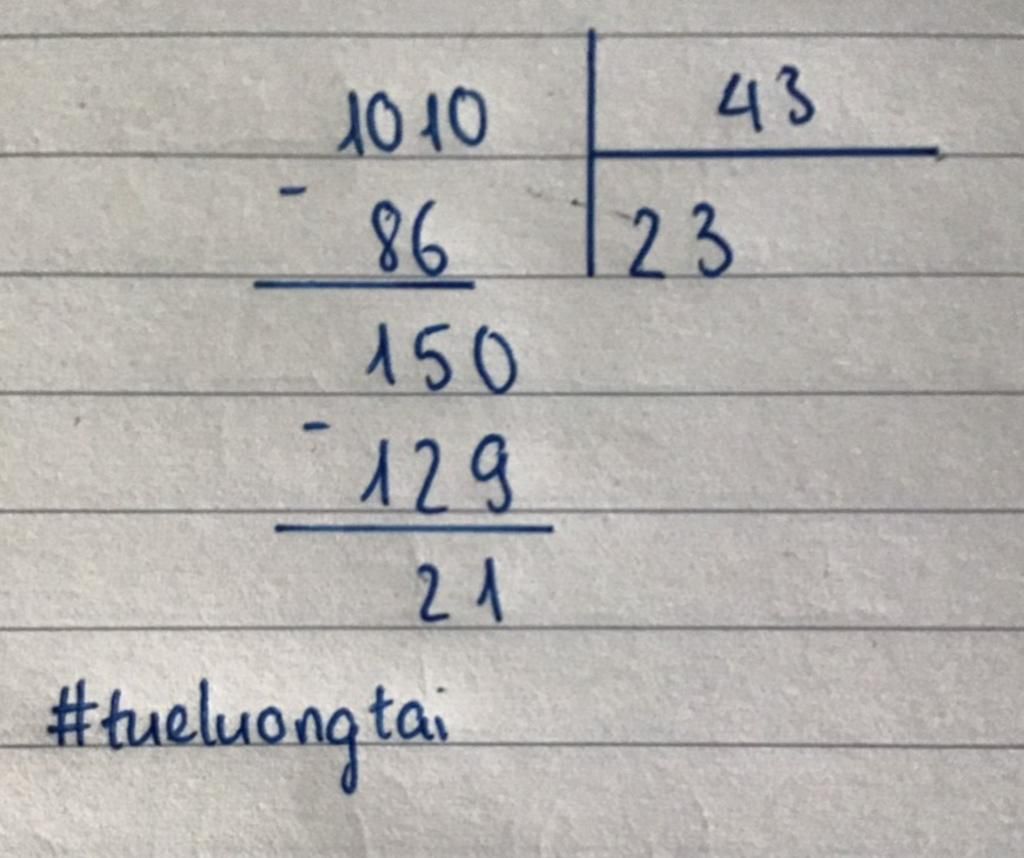 1010 43
- 86 23
150
- 129
21
#tueluongtai